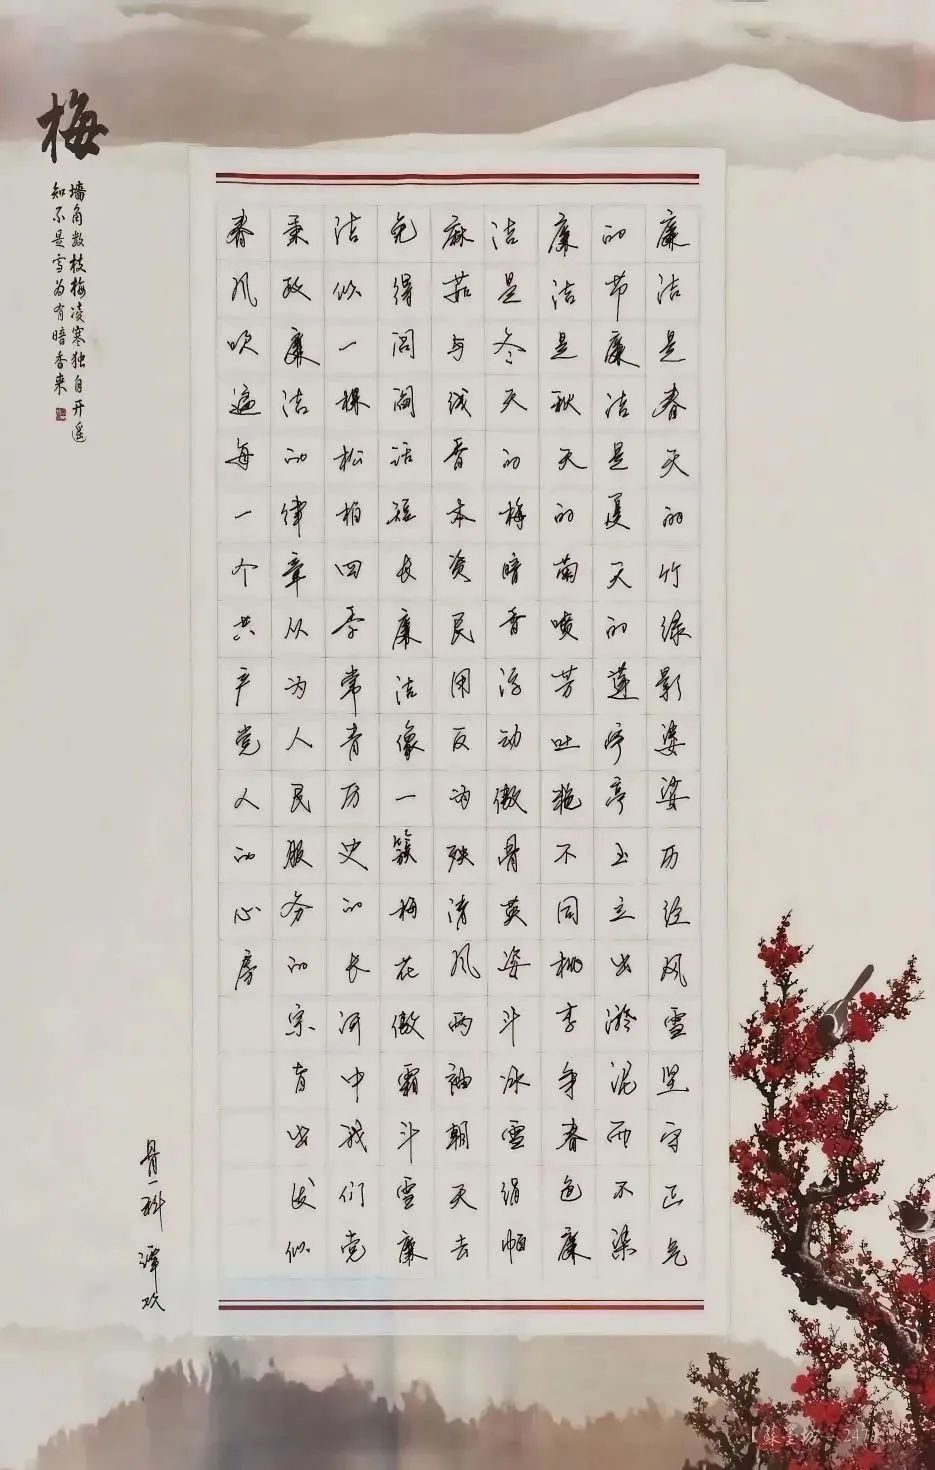 廉洁是春天的竹绿影婆娑历经风雪坚守正气
的节廉洁是夏天的莲亭亭玉立出淤泥而不染
廉洁是秋天的菊喷芳吐艳不同桃李争春色廉
洁是冬天的梅暗香浮动傲骨英姿斗冰雪绢帕
麻菇与线香本资民用反为殃清风两袖朝天去
免得闾阎话短长廉洁像一簇梅花傲霜斗雪廉
洁似一棵松柏四季常青历史的长河中我们党
秉政廉洁的律章从为人民服务的宗旨出发似
春风吹遍每一个共产党人的心房
骨一科 谭
梅
墙角数枝梅凌寒独自开遥
知不是雪为有暗香来